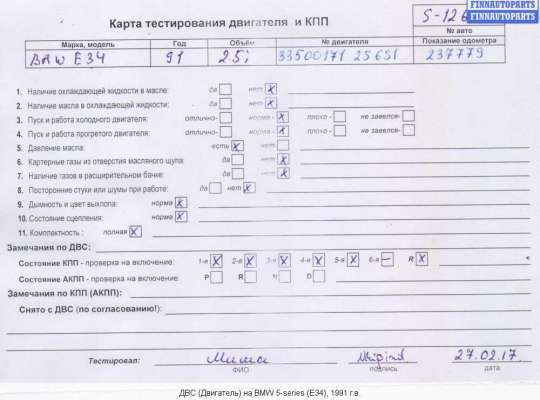 FINNAUTOPARTS
FINNAUTOPARTS
Карта тестирования двигателя и КПП
№ авто
Марка, модель Год Объём № двигателя Показание одометра
BMW E34 91 2.5i 33500171 25 6S1 237779
1. Наличие охлаждающей жидкости в масле: да нет X
2. Наличие масла в охлаждающей жидкости: да нет X
3. Пуск и работа холодного двигателя: отлично- норма - X плохо - не завелся-
4. Пуск и работа прогретого двигателя: отлично- норма - X плохо - не завелся-
5. Давление масла: есть X нет
6. Картерные газы из отверстия масляного щупа: да нет X
7. Наличие газов в расширительном бачке: да нет X
8. Посторонние стуки или шумы при работе: да нет X
9. Дымность и цвет выхлопа: норма X
10. Состояние сцепления: норма X
11. Комплектность : полная X
Замечания по ДВС:
Состояние КПП - проверка на включение: 1-я X 2-я X 3-я X 4-я X 5-я X 6-я – R X
Состояние АКПП - проверка на включение: P R N D
Замечания по КПП (АКПП):
Снято с ДВС (по согласованию!):
Тестировал: Миша 27.02.17
ФИО подпись дата
ДВС (Двигатель) на BMW 5-series (E34), 1991 г.в.